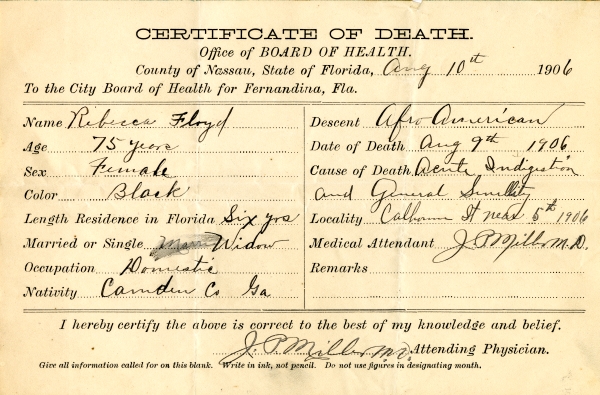 CERTIFICATE OF DEATH.
Office of BOARD OF HEALTH.
County of Nassau, State of Florida, Aug 10th 1906
To the City Board of Health for Fernandina, Fla.
Name Rebecca Floyd
Age 75 years
Sex Female
Color Black
Length Residence in Florida Six yrs
Married or Single Widow
Occupation Domestic
Nativity Camden Co Ga
Descent Afro American
Date of Death Aug 9th 1906
Cause of Death Acute Indigestion
and General Senility
Locality Calhoun St near 5th 1906
Medical Attendant J. P. Miller M.D.
Remarks
I hereby certify the above is correct to the best of my knowledge and belief.
J. P. Miller M.D. Attending Physician.
Give all information called for on this blank. Write in ink, not pencil. Do not use figures in designating month.